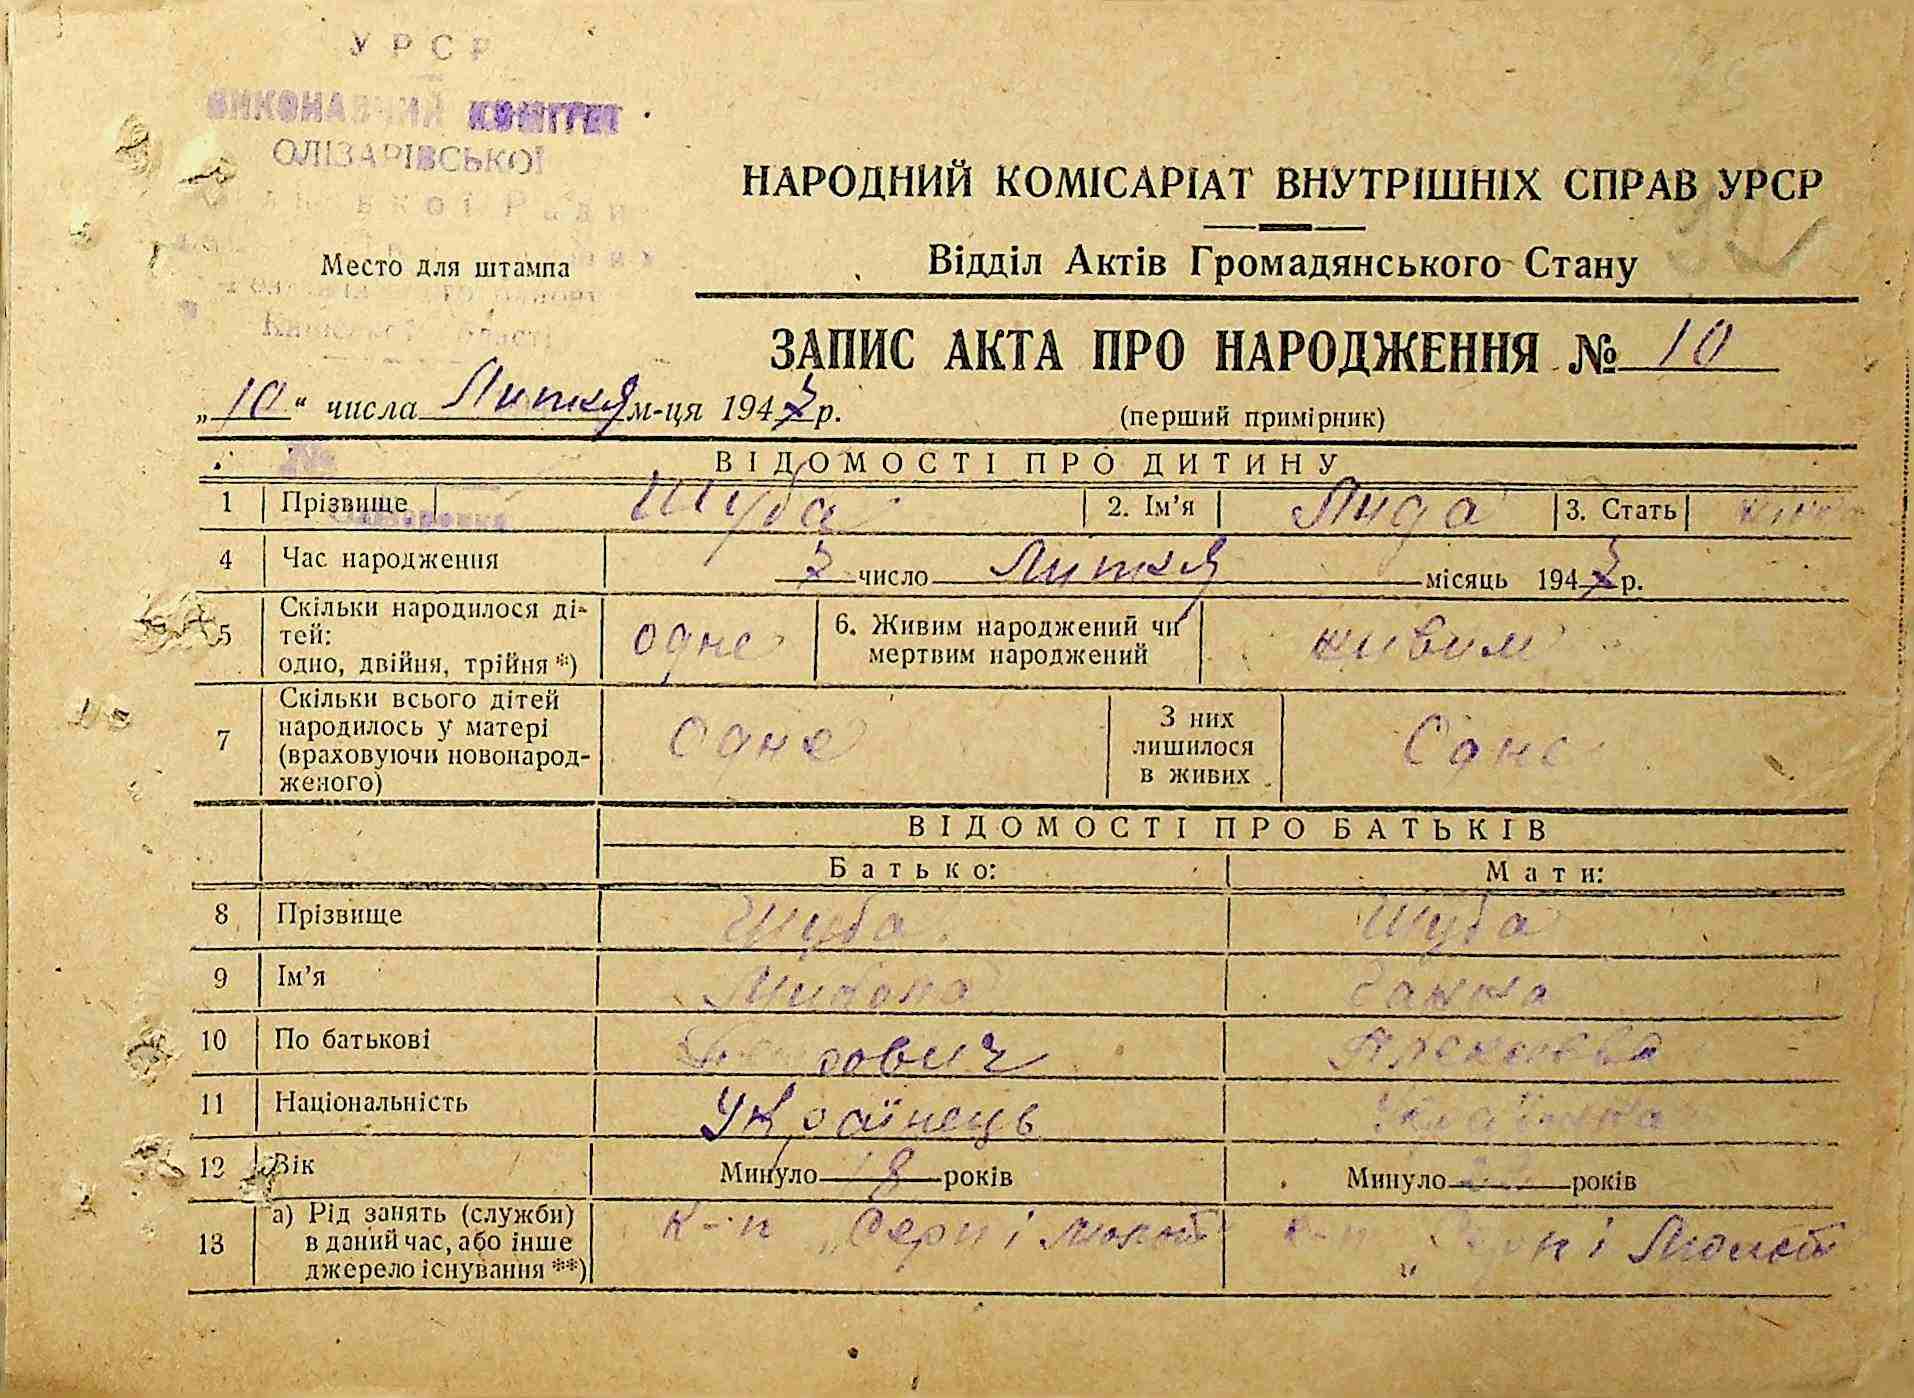 УРСР
ВИКОНАВЧИЙ КОМІТЕТ
ОЛІЗАРІВСЬКОЇ
Ради
Місто для штампа
області
НАРОДНИЙ КОМІСАРІАТ ВНУТРІШНІХ СПРАВ УРСР
Відділ Актів Громадянського Стану
ЗАПИС АКТА ПРО НАРОДЖЕННЯ № 10
„10“ числа Липня м-ця 1947 р. (перший примірник)
№
ВІДОМОСТІ ПРО ДИТИНУ
1 Прізвище Шуба 2. Ім’я Лида 3. Стать
4 Час народження 7 число Липня місяць 1947 р.
5 Скільки народилося ді-
тей:
одно, двійня, трійня *) одне 6. Живим народжений чи
мертвим народжений живим
7 Скільки всього дітей
народилось у матері
(враховуючи новонарод-
женого) Одне З них
лишилося
в живих Одне
ВІДОМОСТІ ПРО БАТЬКІВ
Батько: Мати:
8 Прізвище Шуба Шуба
9 Ім’я Ганна
10 По батькові
11 Національність Українець Українка
12 Вік Минуло 18 років Минуло років
13 а) Рід занять (служби)
в даний час, або інше
джерело існування **) к-п „Серп і молот к-п „Серп і Молот